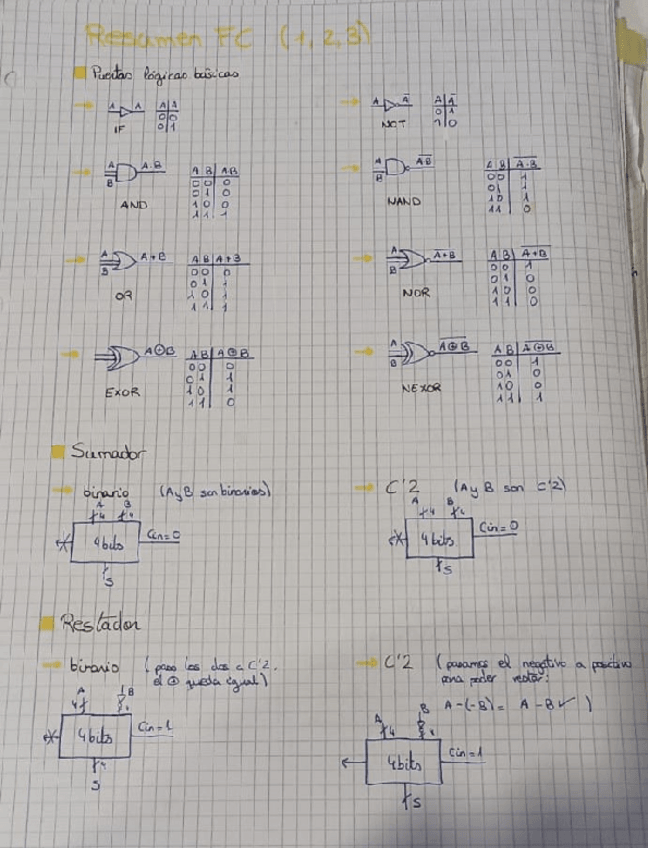 Resumen FC (1, 2, 3)
Puertas lógicas básicas
A A
A|A
0|0
0|1
IF
A Ā
A|Ā
0|1
1|0
NOT
A B A·B
A B|AB
0 0|0
0 1|0
1 0|0
1 1|1
AND
A B A̅B̅
A B|A̅·̅B̅
0 0|1
0 1|1
1 0|1
1 1|0
NAND
A B A+B
A B|A+B
0 0|0
0 1|1
1 0|1
1 1|1
OR
A B A̅+̅B̅
A B|A̅+̅B̅
0 0|1
0 1|0
1 0|0
1 1|0
NOR
A⊕B
A B|A⊕B
0 0|0
0 1|1
1 0|1
1 1|0
EXOR
A B A̅⊕̅B̅
A B|A̅⊕̅B̅
0 0|1
0 1|0
1 0|0
1 1|1
NEXOR
Sumador
binario (A y B son binarios)
A B
4 4
4 bits Cin=0
S
C'2 (A y B son C'2)
A B
4 4
4 bits Cin=0
S
Restador
binario (paso los dos a C'2,
el ⊕ queda igual)
A B
4
4 bits Cin=1
S
C'2 (pasamos el negativo a positivo
para poder restar:
A-(-B)= A-B ✓)
A B
4
4 bits Cin=1
S